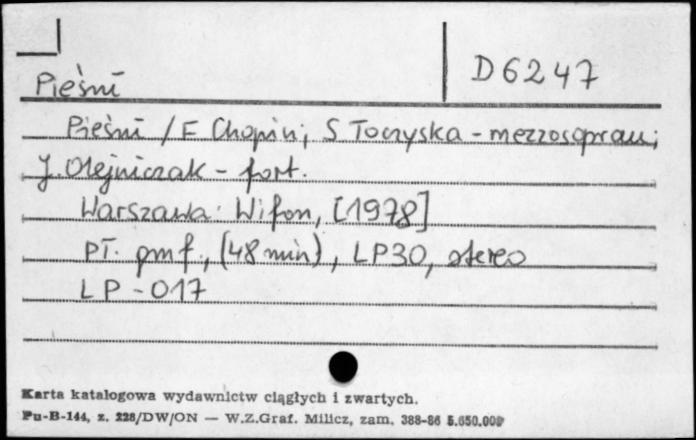 D6247
Pieśni
Pieśni / F Chopin; S Toczyska - mezzosopran;
J. Olejniczak - fort.
Warszawa: Wifon, [1978]
Pł. gmf., (48 min), LP30, stereo
LP-017
Karta katalogowa wydawnictw ciągłych i zwartych.
Pu-B-144, z. 228/DW/ON — W.Z.Graf. Milicz, zam. 388-86 5.650.000